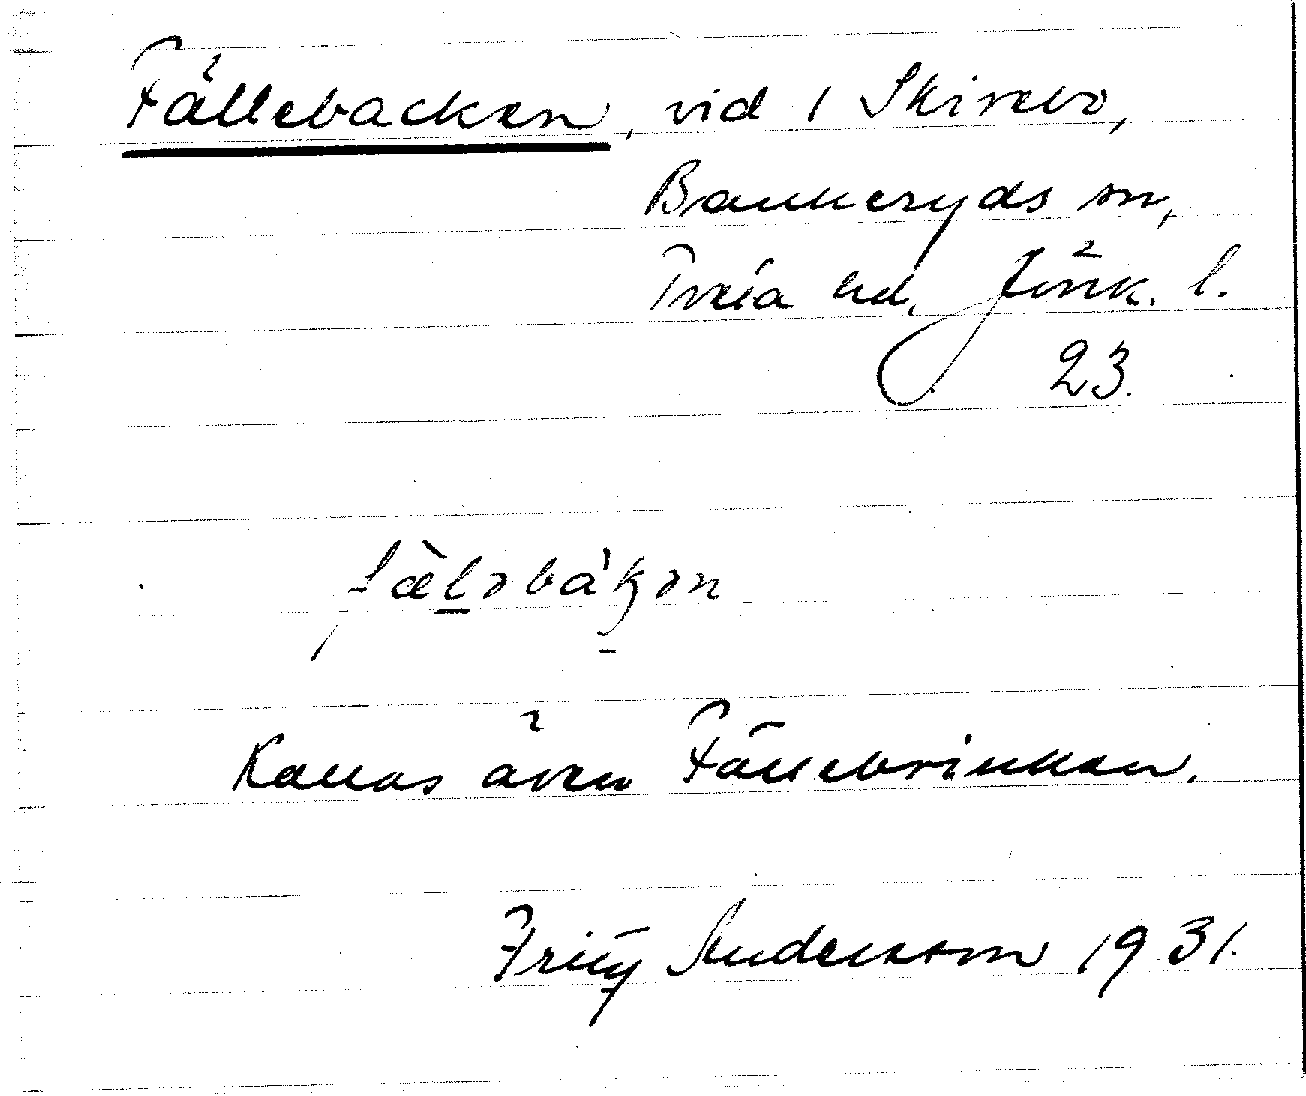 Fällebacken, vid 1 Skirebo,
Bankeryds sn,
Tveta hd, Jönk. l.
23.
fæ̀lǝbákǝn
Kallas även Fällebrinken.
Fritz Anderson 1931.